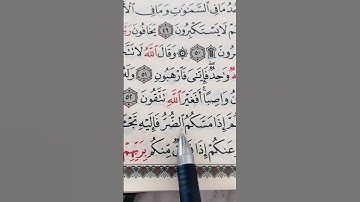 مَا فِي ٱلسَّمَٰوَٰتِ وَمَا فِي
لَا يَسْتَكْبِرُونَ ٤٩ يَخَافُونَ
۩ ٥٠ ۞ وَقَالَ ٱللَّهُ لَا
وَٰحِدٌ فَإِيَّٰيَ فَٱرْهَبُونِ ٥١
وَاصِبًا أَفَغَيْرَ ٱللَّهِ تَتَّقُونَ ٥٢
إِذَا مَسَّكُمُ ٱلضُّرُّ فَإِلَيْهِ
عَنكُمْ إِذَا مِّنكُم بِرَبِّهِمْ